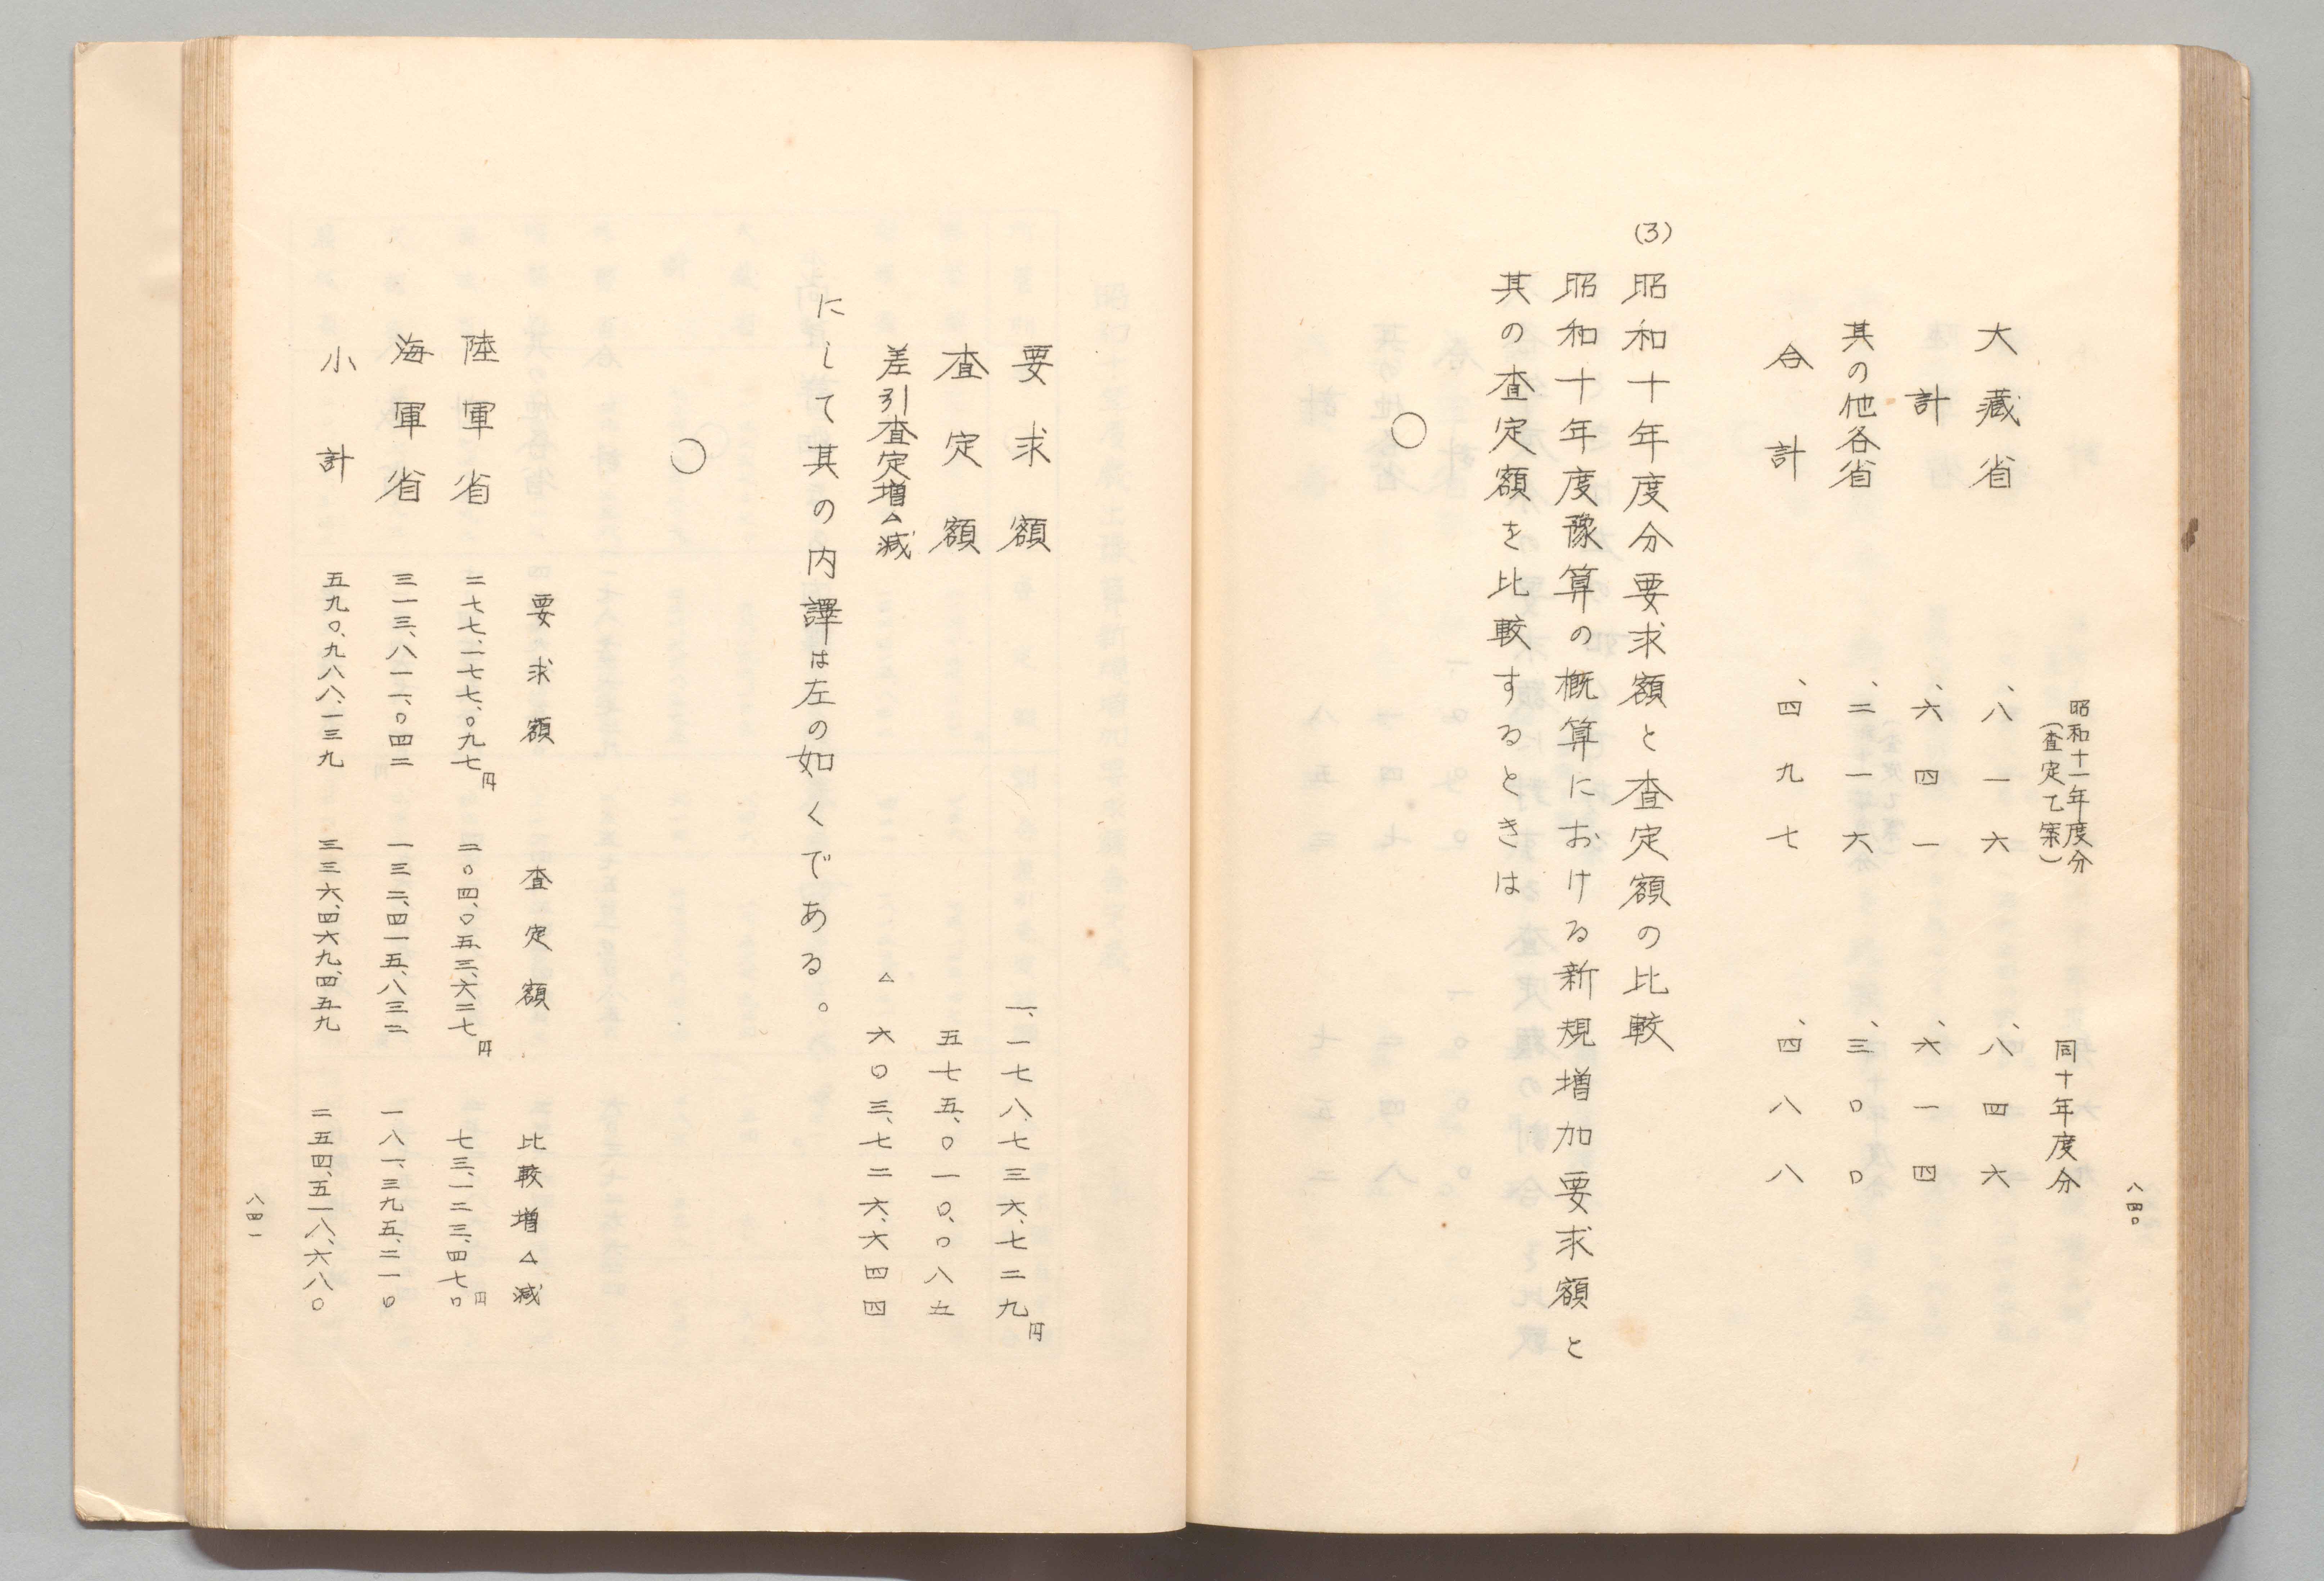 八四〇
昭和十一年度分　同十年度分
(査定乙案)
大藏省　、八一六　、八四六
計　、六四一　、六一四
其の他各省　、二一六　、三〇〇
合計　、四九七　、四八八
(3) 昭和十年度分要求額と査定額の比較
昭和十年度豫算の概算における新規増加要求額と
其の査定額を比較するときは
○
要求額　一、一七八、七三六、七二九円
査定額　五七五、〇一〇、〇八五
差引査定増△減　△六〇三、七二六、六四四
にして其の内譯は左の如くである。
○
要求額　査定額　比較増△減
陸軍省　二七七、一七七、〇九七円　二〇四、〇五三、六二七円　七三、一二三、四七〇円
海軍省　三一三、八一一、〇四二　一三二、四一五、八三二　一八一、三九五、二一〇
小計　五九〇、九八八、一三九　三三六、四六九、四五九　二五四、五一八、六八〇
八四一